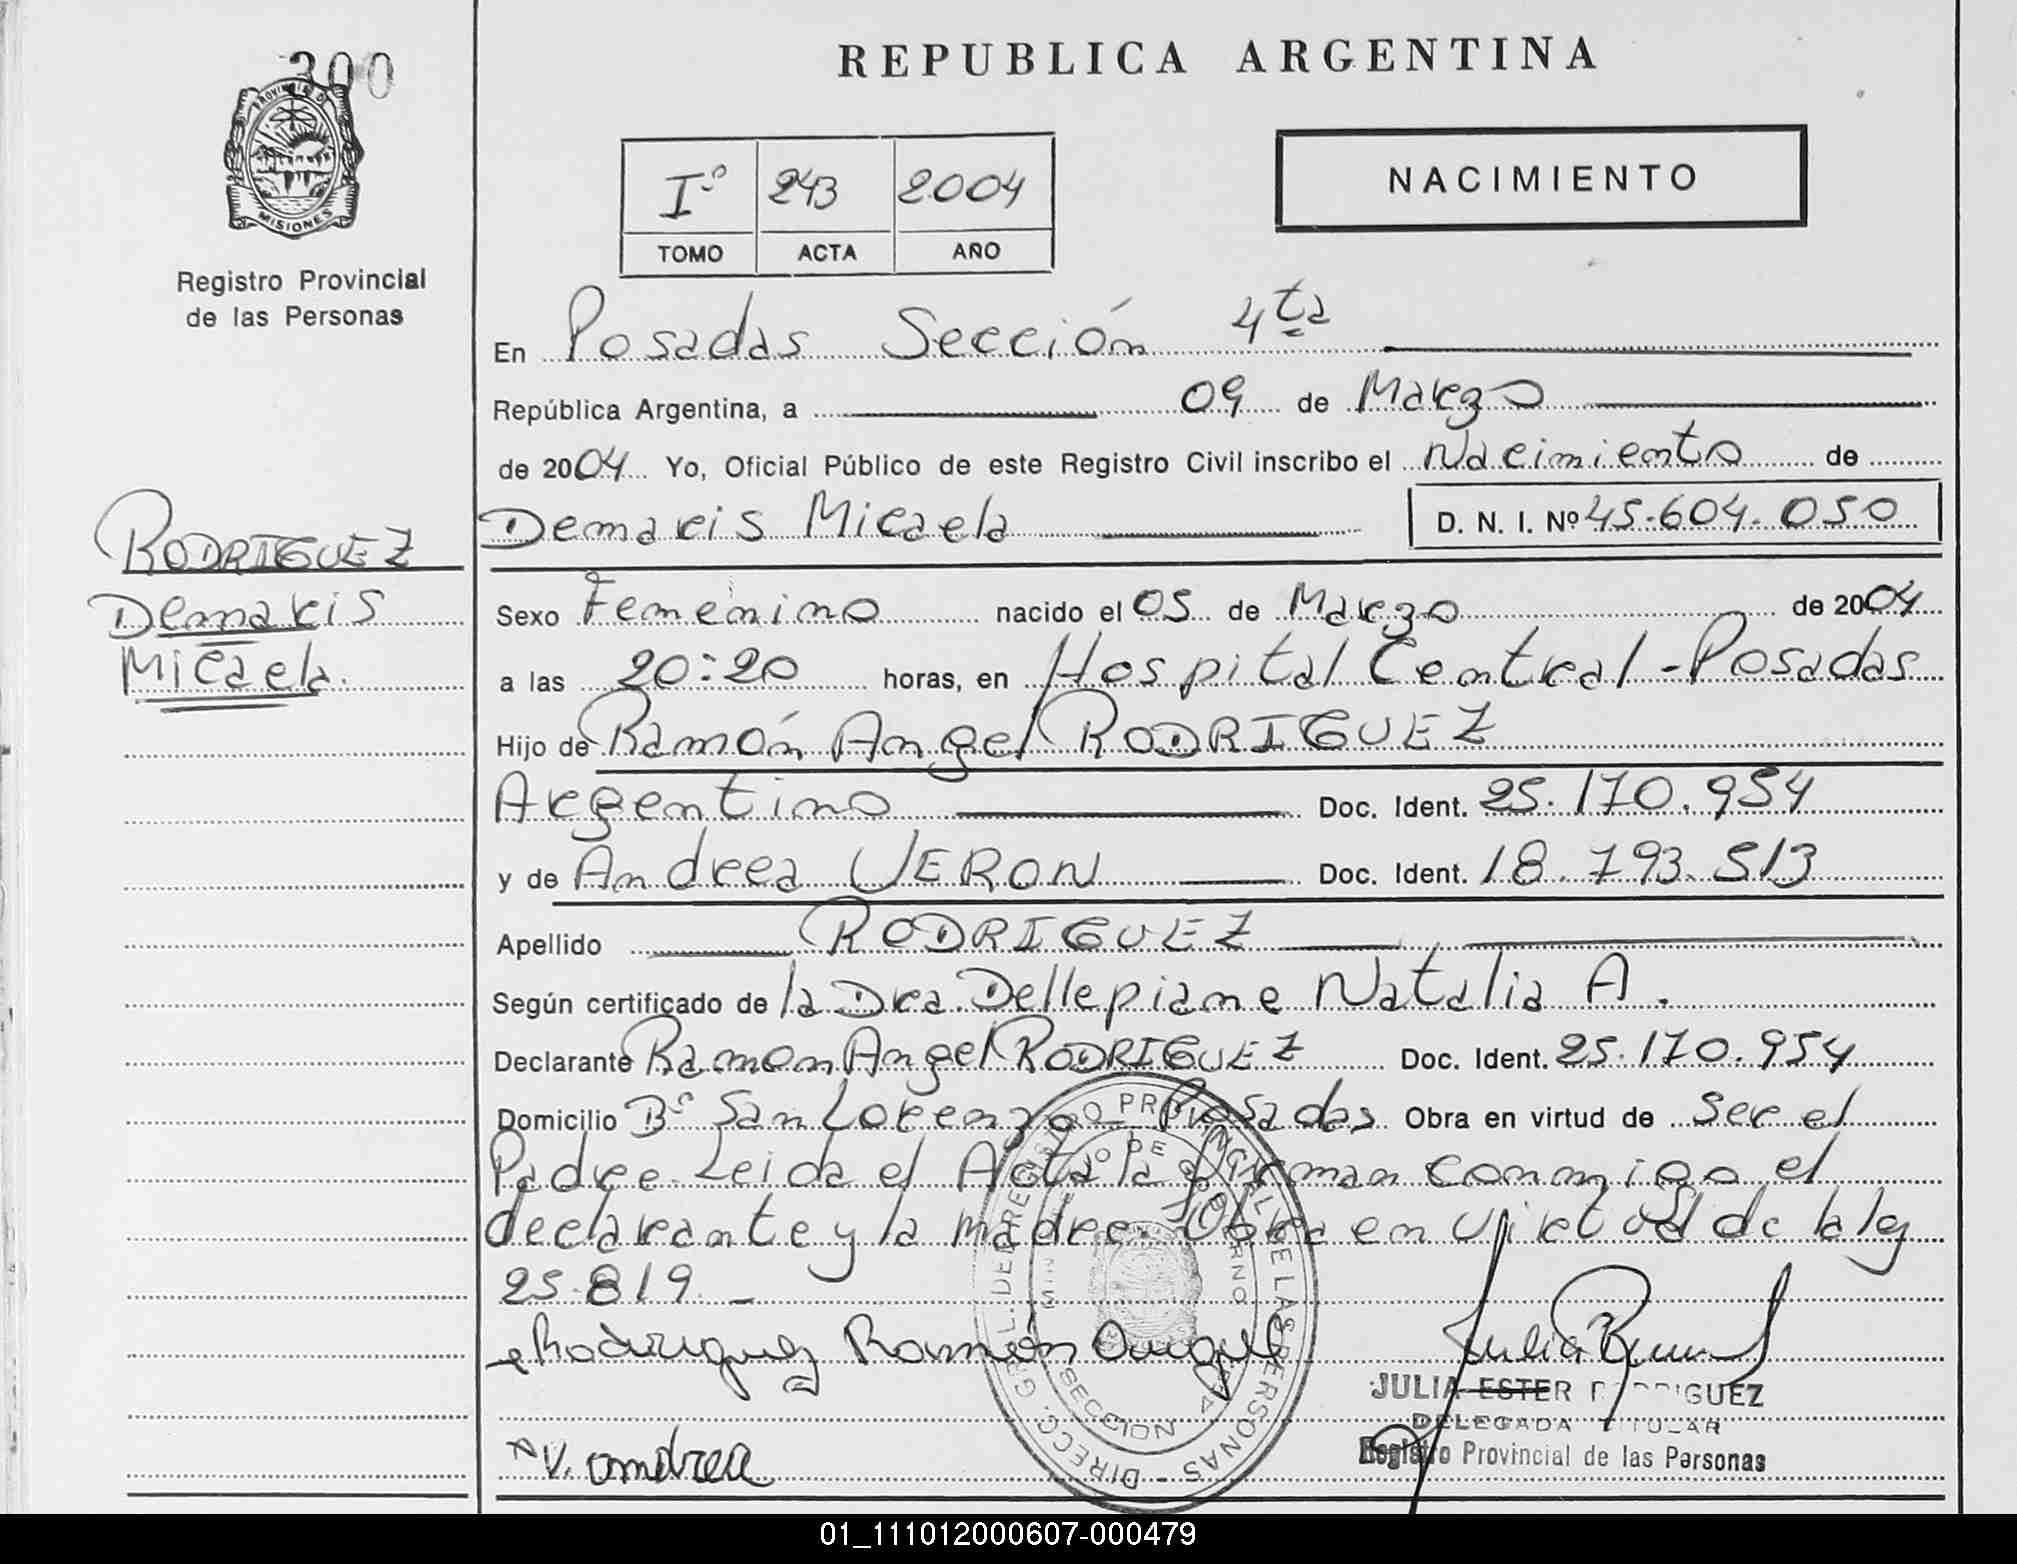 300
PROVINCIA DE
MISIONES
Registro Provincial
de las Personas
RODRIGUEZ
Demaris
Micaela.
REPUBLICA ARGENTINA
Iº 243 2004
TOMO ACTA AÑO
NACIMIENTO
En Posadas Sección 4ta
República Argentina, a 09 de Marzo
de 2004 Yo, Oficial Público de este Registro Civil inscribo el Nacimiento de
Demaris Micaela D. N. I. Nº 45.604.050
Sexo Femenino nacido el 05 de Marzo de 2004
a las 20:20 horas, en Hospital Central - Posadas
Hijo de Ramón Angel RODRIGUEZ
Argentino Doc. Ident. 25.170.954
y de Andrea VERON Doc. Ident. 18.793.513
Apellido RODRIGUEZ
Según certificado de la Dra. Dellepiane Natalia A.
Declarante Ramon Angel RODRIGUEZ Doc. Ident. 25.170.954
Domicilio Bº San Lorenzo - Posadas Obra en virtud de Ser el
Padre. Leida el Acta la firman conmigo el
declarante y la madre. Obra en virtud de la ley
25.819. -
Rodriguez Ramón Angel
V. andrea
DIRECC. GRAL. DEL REGISTRO PROVINCIAL DE LAS PERSONAS -
SECCION 4ª
JULIA ESTER RODRIGUEZ
DELEGADA TITULAR
Registro Provincial de las Personas
01_111012000607-000479